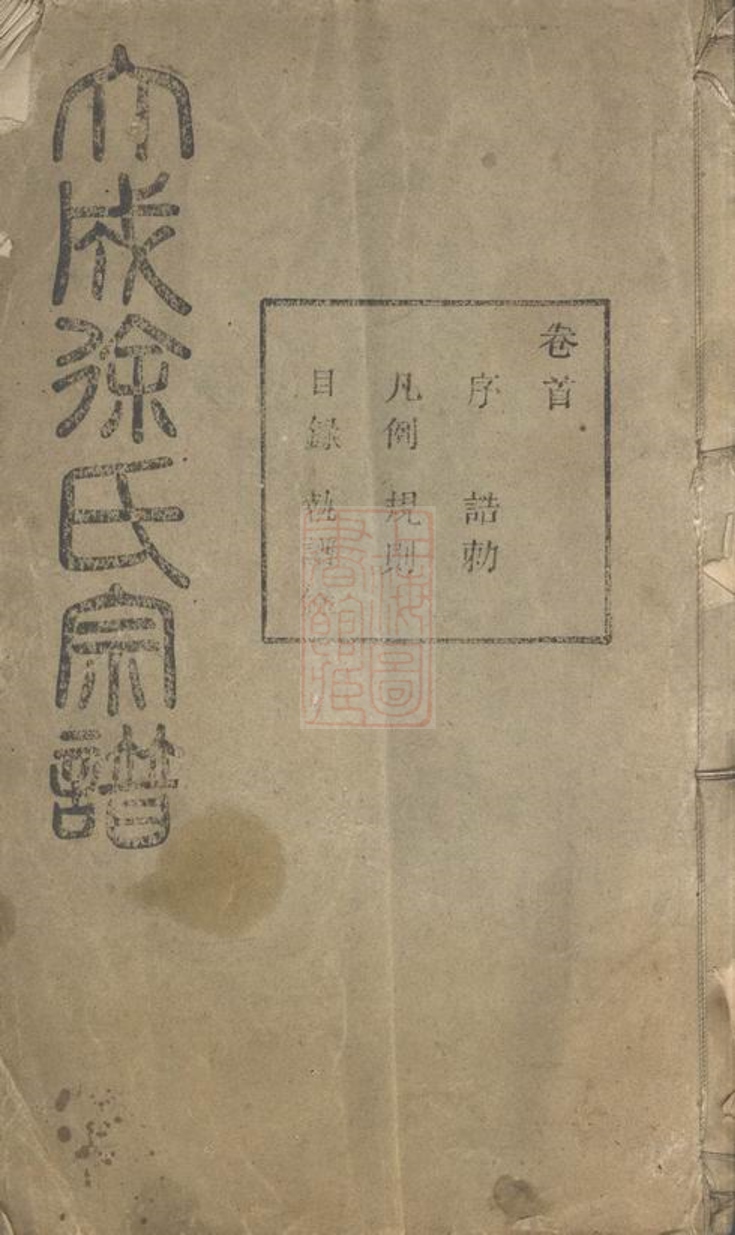 大成徐氏宗譜
卷首
序 誥勅
凡例 規則
目錄 執譜
上海圖書館藏